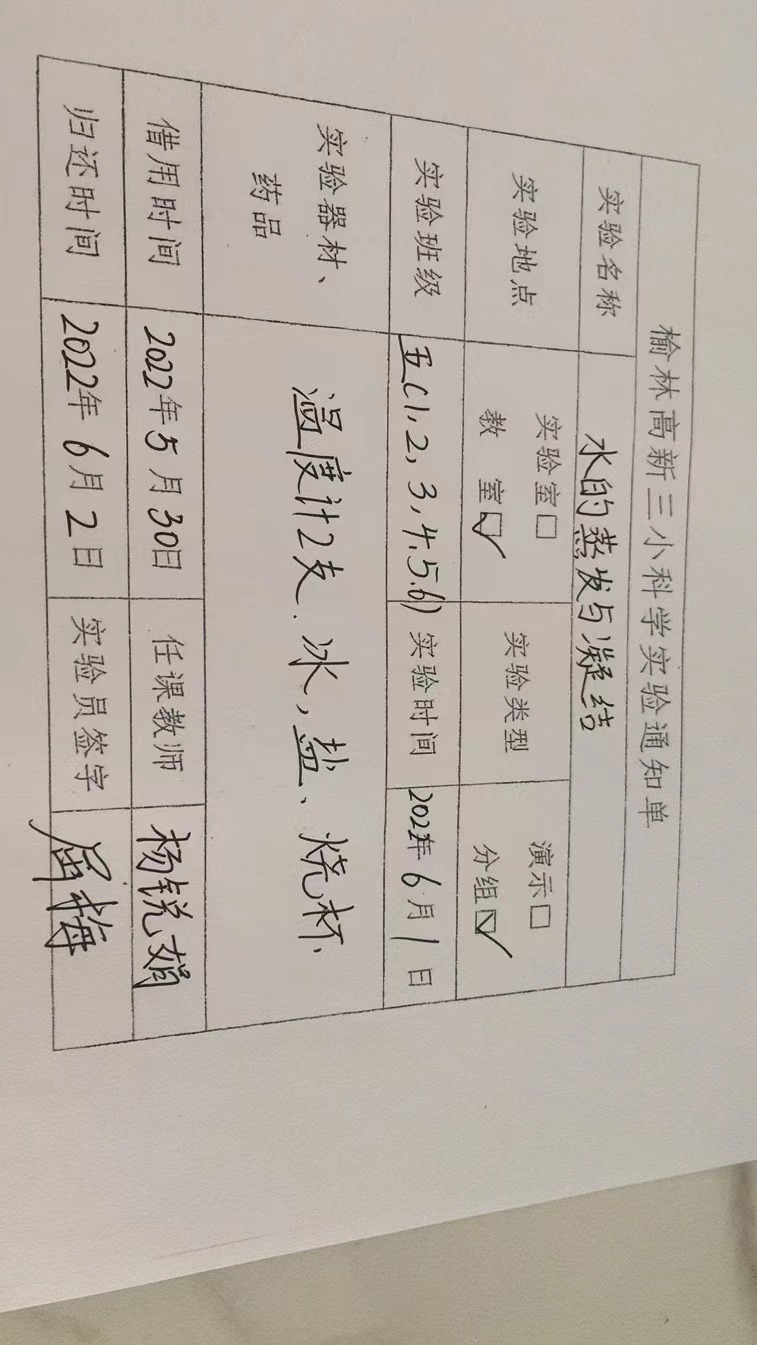 榆林高新三小科学实验通知单
实验名称 水的蒸发与凝结
实验地点 实验室□ 教 室☑ 实验类型 演示□ 分组☑
实验班级 五(1,2,3,4.5.6) 实验时间 2022年6月1日
实验器材、药品 温度计2支.冰,盐、烧杯.
借用时间 2022年5月30日 任课教师 杨锐娟
归还时间 2022年6月2日 实验员签字 屈梅